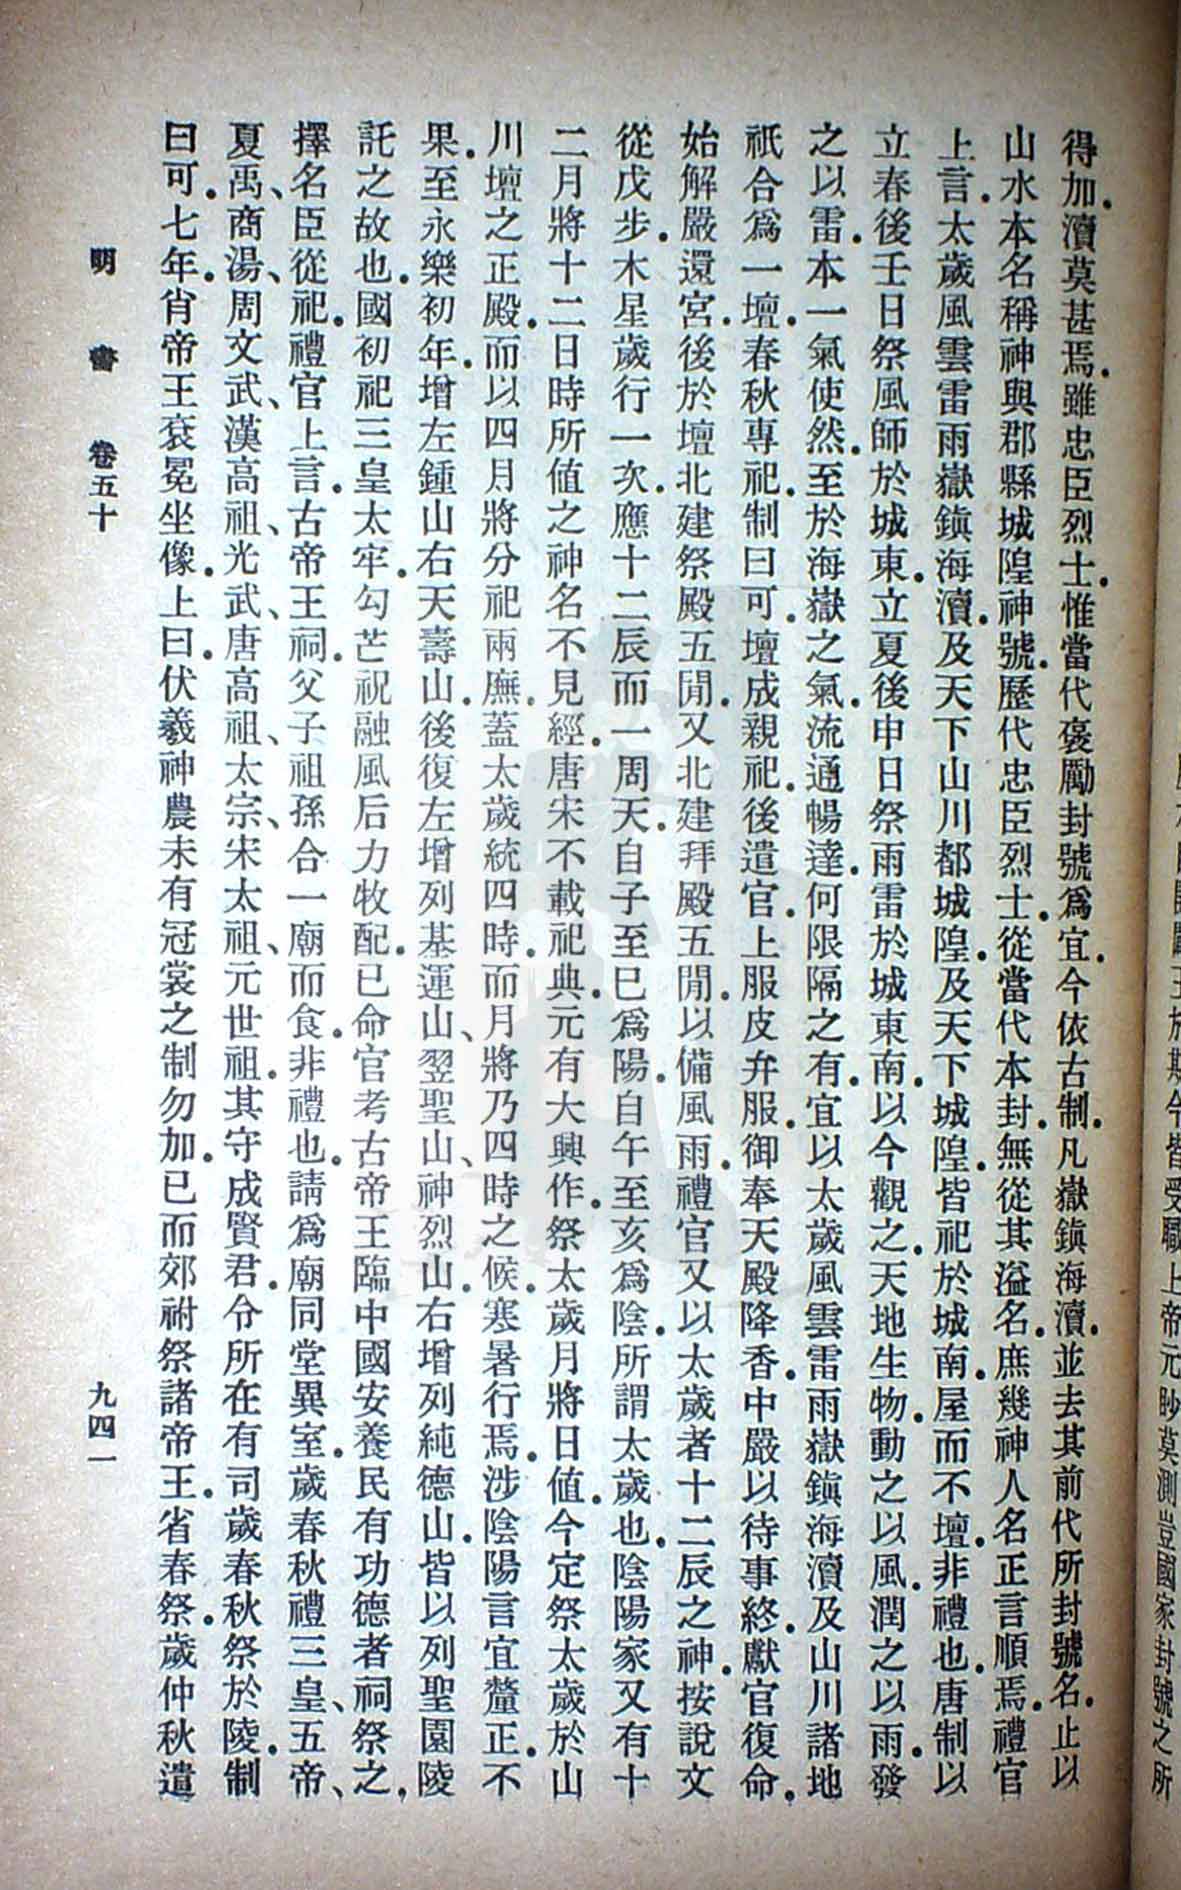 得加瀆莫甚焉雖忠臣烈士惟當代褒勵封號爲宜今依古制凡嶽鎭海瀆並去其前代所封號名止以
山水本名稱神與郡縣城隍神號歷代忠臣烈士從當代本封無從其溢名庶幾神人名正言順焉禮官
上言太歲風雲雷雨嶽鎭海瀆及天下山川都城隍及天下城隍皆祀於城南屋而不壇非禮也唐制以
立春後壬日祭風師於城東立夏後申日祭雨雷於城東南以今觀之天地生物動之以風潤之以雨發
之以雷本一氣使然至於海嶽之氣流通暢達何限隔之有宜以太歲風雲雷雨嶽鎭海瀆及山川諸地
祇合爲一壇春秋專祀制曰可壇成親祀後遣官上服皮弁服御奉天殿降香中嚴以待事終獻官復命
始解嚴還宮後於壇北建祭殿五間又北建拜殿五間以備風雨禮官又以太歲者十二辰之神按說文
從戊步木星歲行一次應十二辰而一周天自子至巳爲陽自午至亥爲陰所謂太歲也陰陽家又有十
二月將十二日時所值之神名不見經唐宋不載祀典元有大興作祭太歲月將日值今定祭太歲於山
川壇之正殿而以四月將分祀兩廡蓋太歲統四時而月將乃四時之候寒暑行焉涉陰陽言宜釐正不
果至永樂初年增左鍾山右天壽山後復左增列基運山、翌聖山、神烈山右增列純德山皆以列聖園陵
託之故也國初祀三皇太牢勾芒祝融風后力牧配已命官考古帝王臨中國安養民有功德者祠祭之
擇名臣從祀禮官上言古帝王祠父子祖孫合一廟而食非禮也請爲廟同堂異室歲春秋禮三皇、五帝、
夏禹、商湯、周文武、漢高祖、光武、唐高祖、太宗、宋太祖、元世祖其守成賢君令所在有司歲春秋祭於陵制
曰可七年肖帝王袞冕坐像上曰伏羲神農未有冠裳之制勿加已而郊祔祭諸帝王省春祭歲仲秋遣
明書 卷五十 九四一